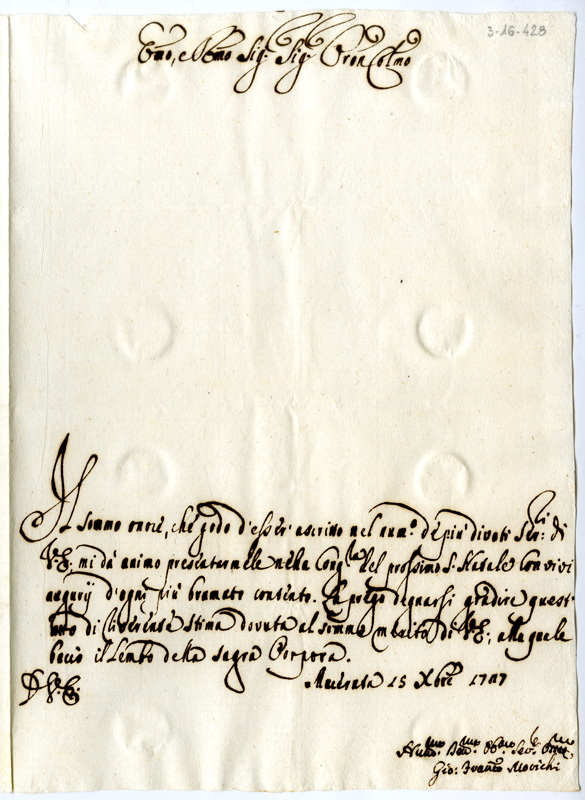 3-16-428
Emo, e Rmo Sig:r Sig:r Pron Colmo
Il sommo onore, che godo d'esser ascritto nel num.o de più divoti Ser:ri di
V.E. mi dà animo presentarmele nella Cong.ra del prossimo S. Natale con vivi
augurij d'ogni più bramato contento. La prego degnarsi gradire quest'
atto di riverente stima dovuta al sommo merito di V.E., alla quale
bacio il Lembo della Sagra Porpora.
D V.E.
Macerata 15 Xbre 1707
Gio: Franco